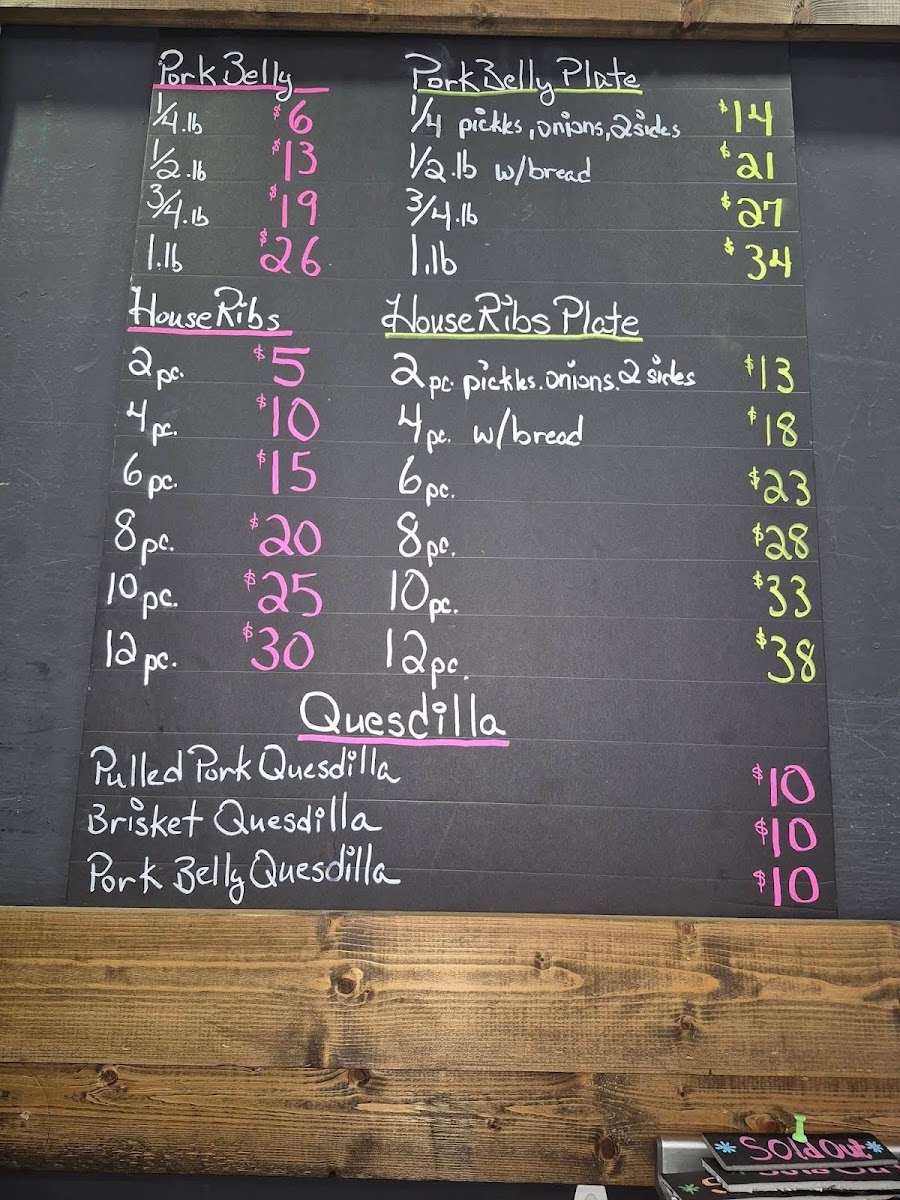 Pork Belly
1/4.lb $6
1/2.lb $13
3/4.lb $19
1.lb $26
Pork Belly Plate
1/4 pickles, onions, 2 sides $14
1/2.lb w/bread $21
3/4.lb $27
1.lb $34
House Ribs
2pc. $5
4pc. $10
6pc. $15
8pc. $20
10pc. $25
12pc. $30
House Ribs Plate
2pc. pickles. onions. 2 sides $13
4pc. w/bread $18
6pc. $23
8pc. $28
10pc. $33
12pc. $38
Quesdilla
Pulled Pork Quesdilla $10
Brisket Quesdilla $10
Pork Belly Quesdilla $10
*Sold Out*